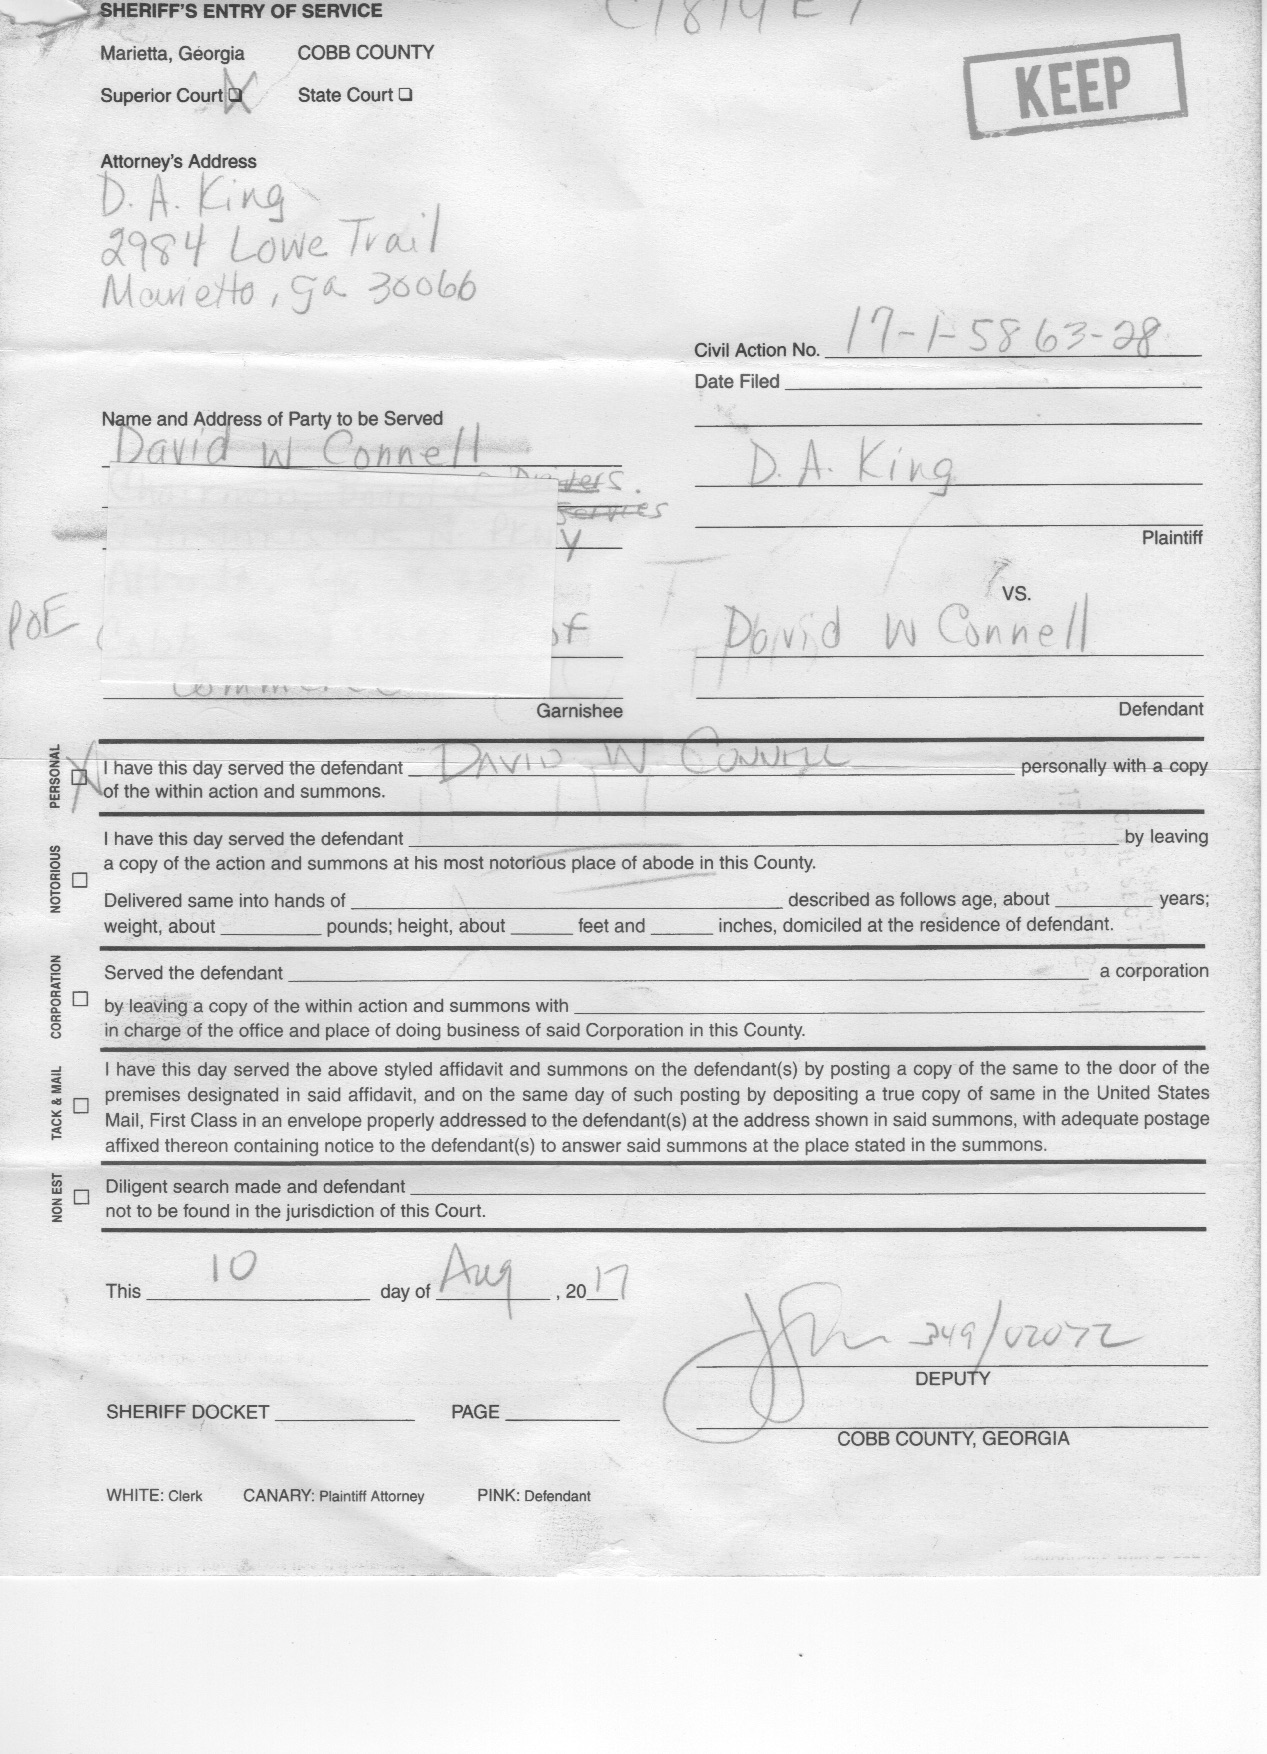 SHERIFF'S ENTRY OF SERVICE
Marietta, Georgia COBB COUNTY
Superior Court State Court
KEEP
Attorney's Address
D. A. King
2984 Lowe Trail
Marietta, ga 30066
Civil Action No. 17-1-5863-28
Date Filed
Name and Address of Party to be Served
David W Connell
D. A. King
Services
Plaintiff
VS.
POE
of
David W Connell
Garnishee
Defendant
PERSONAL
I have this day served the defendant DAVID W CONNELL personally with a copy
of the within action and summons.
NOTORIOUS
I have this day served the defendant by leaving
a copy of the action and summons at his most notorious place of abode in this County.
Delivered same into hands of described as follows age, about years;
weight, about pounds; height, about feet and inches, domiciled at the residence of defendant.
CORPORATION
Served the defendant a corporation
by leaving a copy of the within action and summons with
in charge of the office and place of doing business of said Corporation in this County.
TACK & MAIL
I have this day served the above styled affidavit and summons on the defendant(s) by posting a copy of the same to the door of the
premises designated in said affidavit, and on the same day of such posting by depositing a true copy of same in the United States
Mail, First Class in an envelope properly addressed to the defendant(s) at the address shown in said summons, with adequate postage
affixed thereon containing notice to the defendant(s) to answer said summons at the place stated in the summons.
NON EST
Diligent search made and defendant
not to be found in the jurisdiction of this Court.
This 10 day of Aug, 2017
349/02072
DEPUTY
SHERIFF DOCKET PAGE
COBB COUNTY, GEORGIA
WHITE: Clerk CANARY: Plaintiff Attorney PINK: Defendant